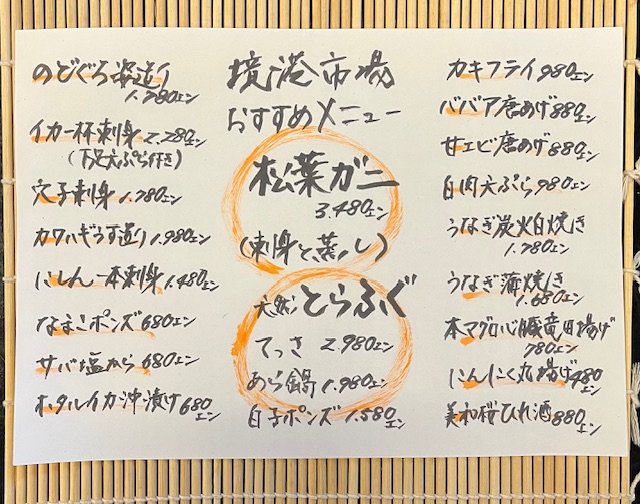 のどぐろ姿造り
1.780エン
イカ一杯刺身 2.280エン
(下足天ぷら付き)
穴子刺身 1.780エン
カワハギうす造り 1.980エン
にしん一本刺身 1.480エン
なまこポンズ 680エン
サバ塩から 680エン
ホタルイカ沖漬け 680エン
境港市場
おすすめメニュー
松葉ガニ
3.480エン
(刺身と蒸し)
天然とらふぐ
てっさ 2.980エン
あら鍋 1.980エン
白子ポンズ 1.580エン
カキフライ 980エン
ババア唐あげ 880エン
甘エビ唐あげ 880エン
白肉天ぷら 980エン
うなぎ炭火白焼き
1.780エン
うなぎ蒲焼き
1.680エン
本マグロ心臓竜田揚げ
780エン
にんにく丸揚げ 480エン
美和桜ひれ酒 880エン